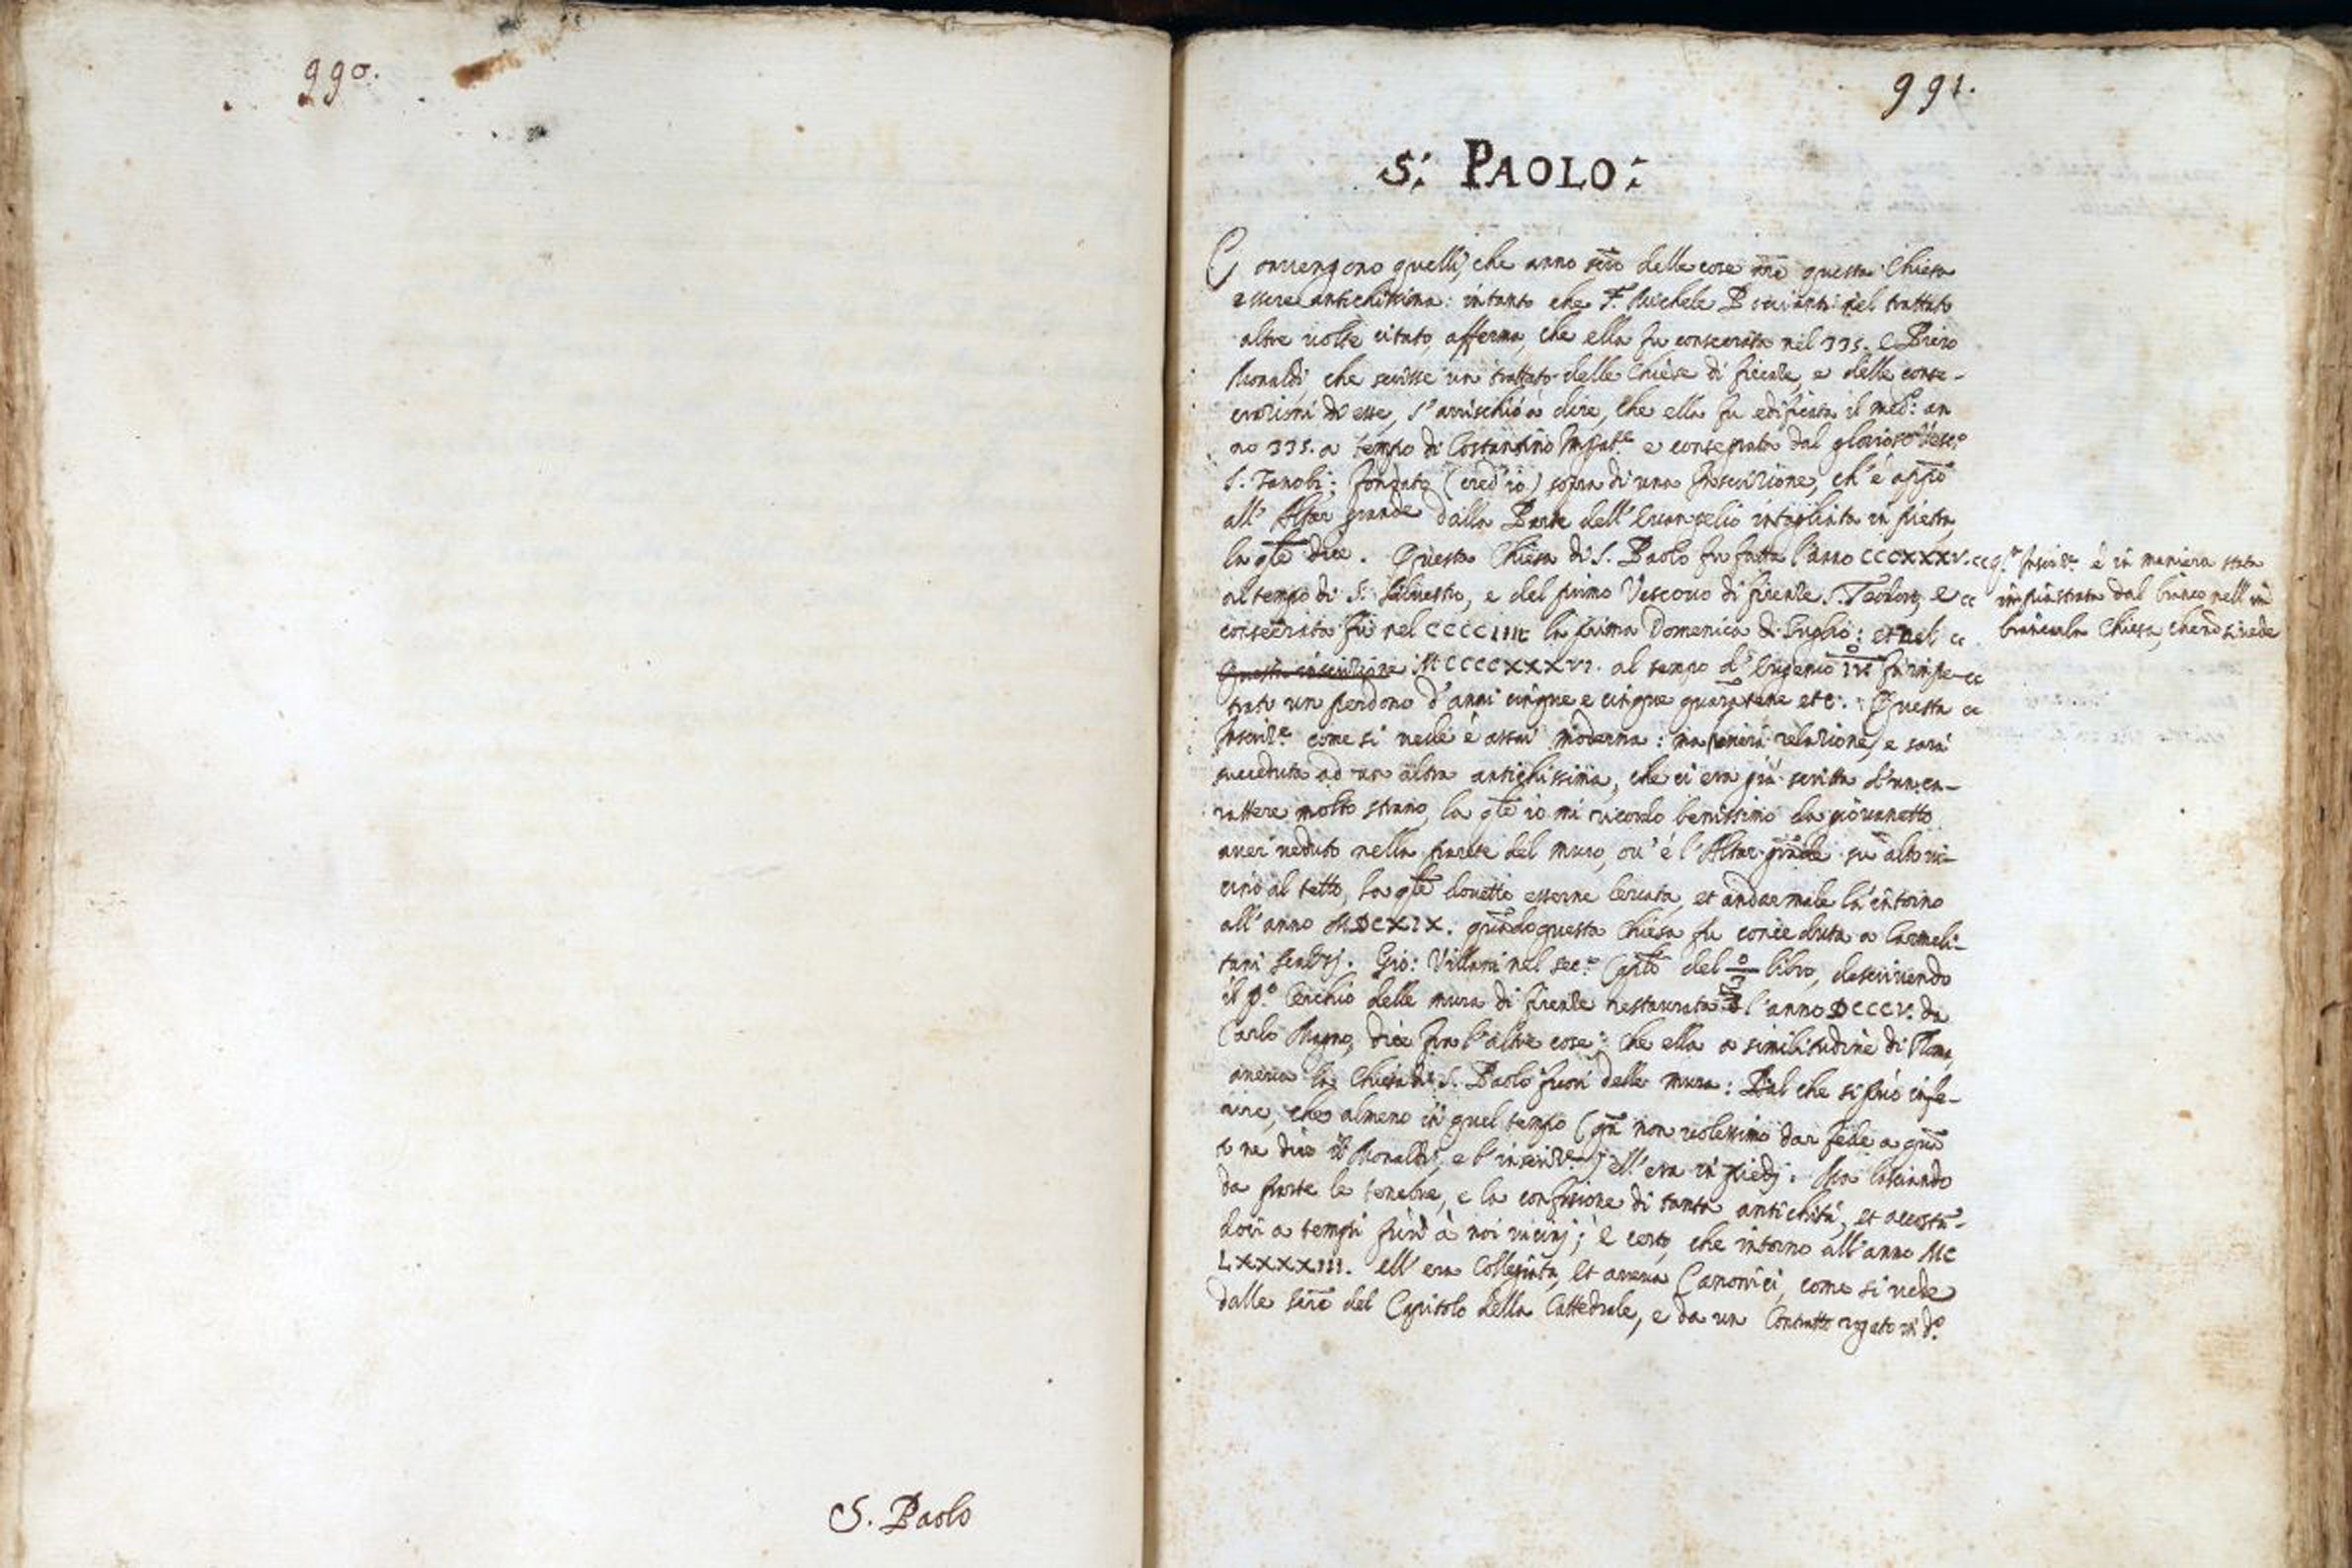 990.
S. Paolo
991.
S: PAOLO:
Convengono quelli, che anno scrō delle cose nrē questa Chiesa
essere antichissima: intanto che F. Michele Poccianti nel trattato
altre volte citato, afferma, che ella fu consecrata nel 335. e Piero
Monaldi, che scrisse un trattato delle Chiese di firenze, e delle conse-
crazioni di esse, s'arrischiò à dire, che ella fu edificata il med:º an
no 335. a tempo di Costantino Impat.re e consegrata dal glorioso Vesc.º
S: Zanobi; fondato (cred'io) sopra di una Inscrizione, ch'è app̄o
all'Altar grande dalla Parte dell'Evangelio intagliata in pietra,
la qle dice. Questa Chiesa di S. Paolo fu fatta l'anno CCCXXXV.
al tempo di S: Silvestro, e del primo Vescovo di firenze S. Teodoro, e
consecrata fù nel CCCCIIII la prima Domenica di Luglio: et nel
Questa inscrizione MCCCCXXXVI. al tempo d' Eugenio IV fu impe-
trato un perdono d'anni cinque e cinque quarantene etc: Questa
Inscriz.e come si vede è assai moderna: ma relazione, e sarà
succeduta ad un altra antichissima, che ci era già scritta d'un ca-
rattere molto strano, la qle io mi ricordo benissimo da giovanetto
aver veduto nella parete del muro, ov'è l'Altar grāde su alto vi-
cino al tetto, la qle dovette esserne levata, et andarmale là intorno
all'anno MDCXIX. quādo questa Chiesa fu conceduta a Carmeli-
tani Scalzj. Gio: Villani nel sec.º Capło del 3 libro, descrivendo
il p.º Cerchio delle mura di firenze restaurata l'anno DCCCV. da
Carlo Magno, dice fra l'altre cose: Che ella a similitudine di Roma,
aveva la Chiesa di S. Paolo fuori delle mura: Dal che si può infe-
rire, che almeno in quel tempo (qn̄ non volessimo dar fede a quā
to ne dice il Monaldi, e l'inscriz.e) ell'era in piedj. Ma lasciando
da parte le tenebre, e la confusione di tanta antichità, et accostā-
doci a tempi più à noi vicinj; è certo, che intorno all'anno MC
LXXXXIII. ell'era Collegiata, et aveva Canonici, come si vede
dalle scrē del Capitolo della Cattedrale, e da un Contratto rogato in d.º
q.ta Inscriz.e è in maniera stata
impiastrata dal bianco nell'im
biancarla Chiesa, che nō si vede